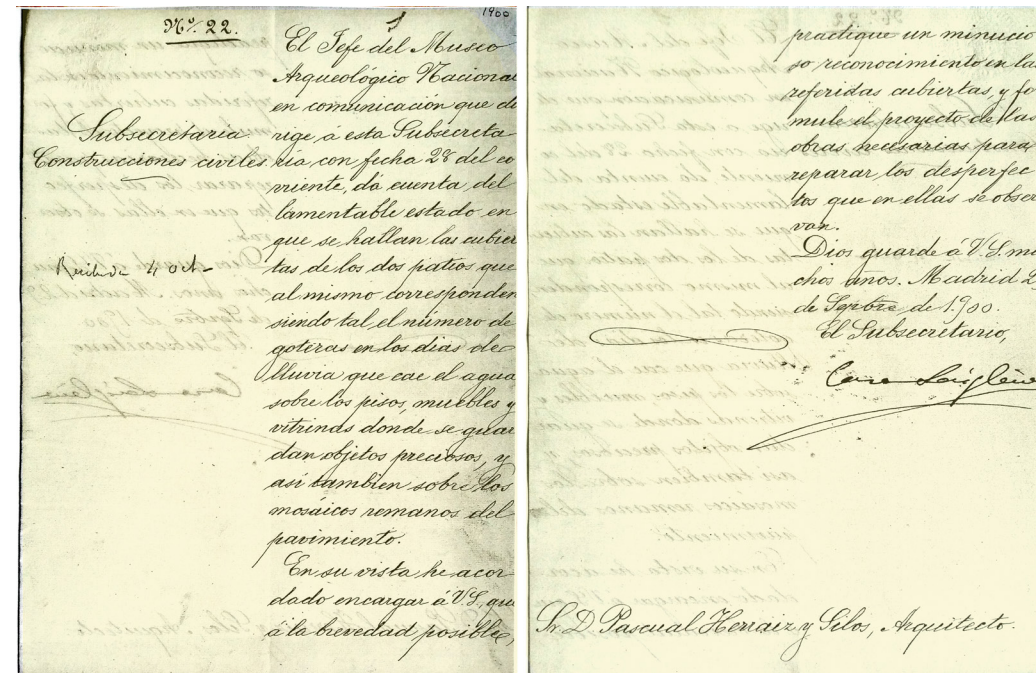 Nº 22.
1
1900
Subsecretaria
Construcciones civiles
Recibida 4 Oct-
El Jefe del Museo
Arqueológico Naciona
en comunicación que di
rige á esta Subsecreta
ria con fecha 28 del co
rriente, dá cuenta del
lamentable estado en
que se hallan las cubier
tas de los dos patios que
al mismo corresponden
siendo tal el número de
goteras en los dias de
lluvia que cae el agua
sobre los pisos, muebles y
vitrinas donde se guar
dan objetos preciosos, y
asi tambien sobre los
mosáicos romanos del
pavimiento.
En su vista he acor
dado encargar á V.S. que
á la brevedad posible,
practique un minucio
so reconocimiento en la
referidas cubiertas, y fo
mule el proyecto de las
obras necesarias para
reparar los desperfec
tos que en ellas se obser
van.
Dios guarde á V.S. mu
chos años. Madrid 2
de Septbre de 1900.
El Subsecretario,
Sr. D. Pascual Herraiz y Silos, Arquitecto.